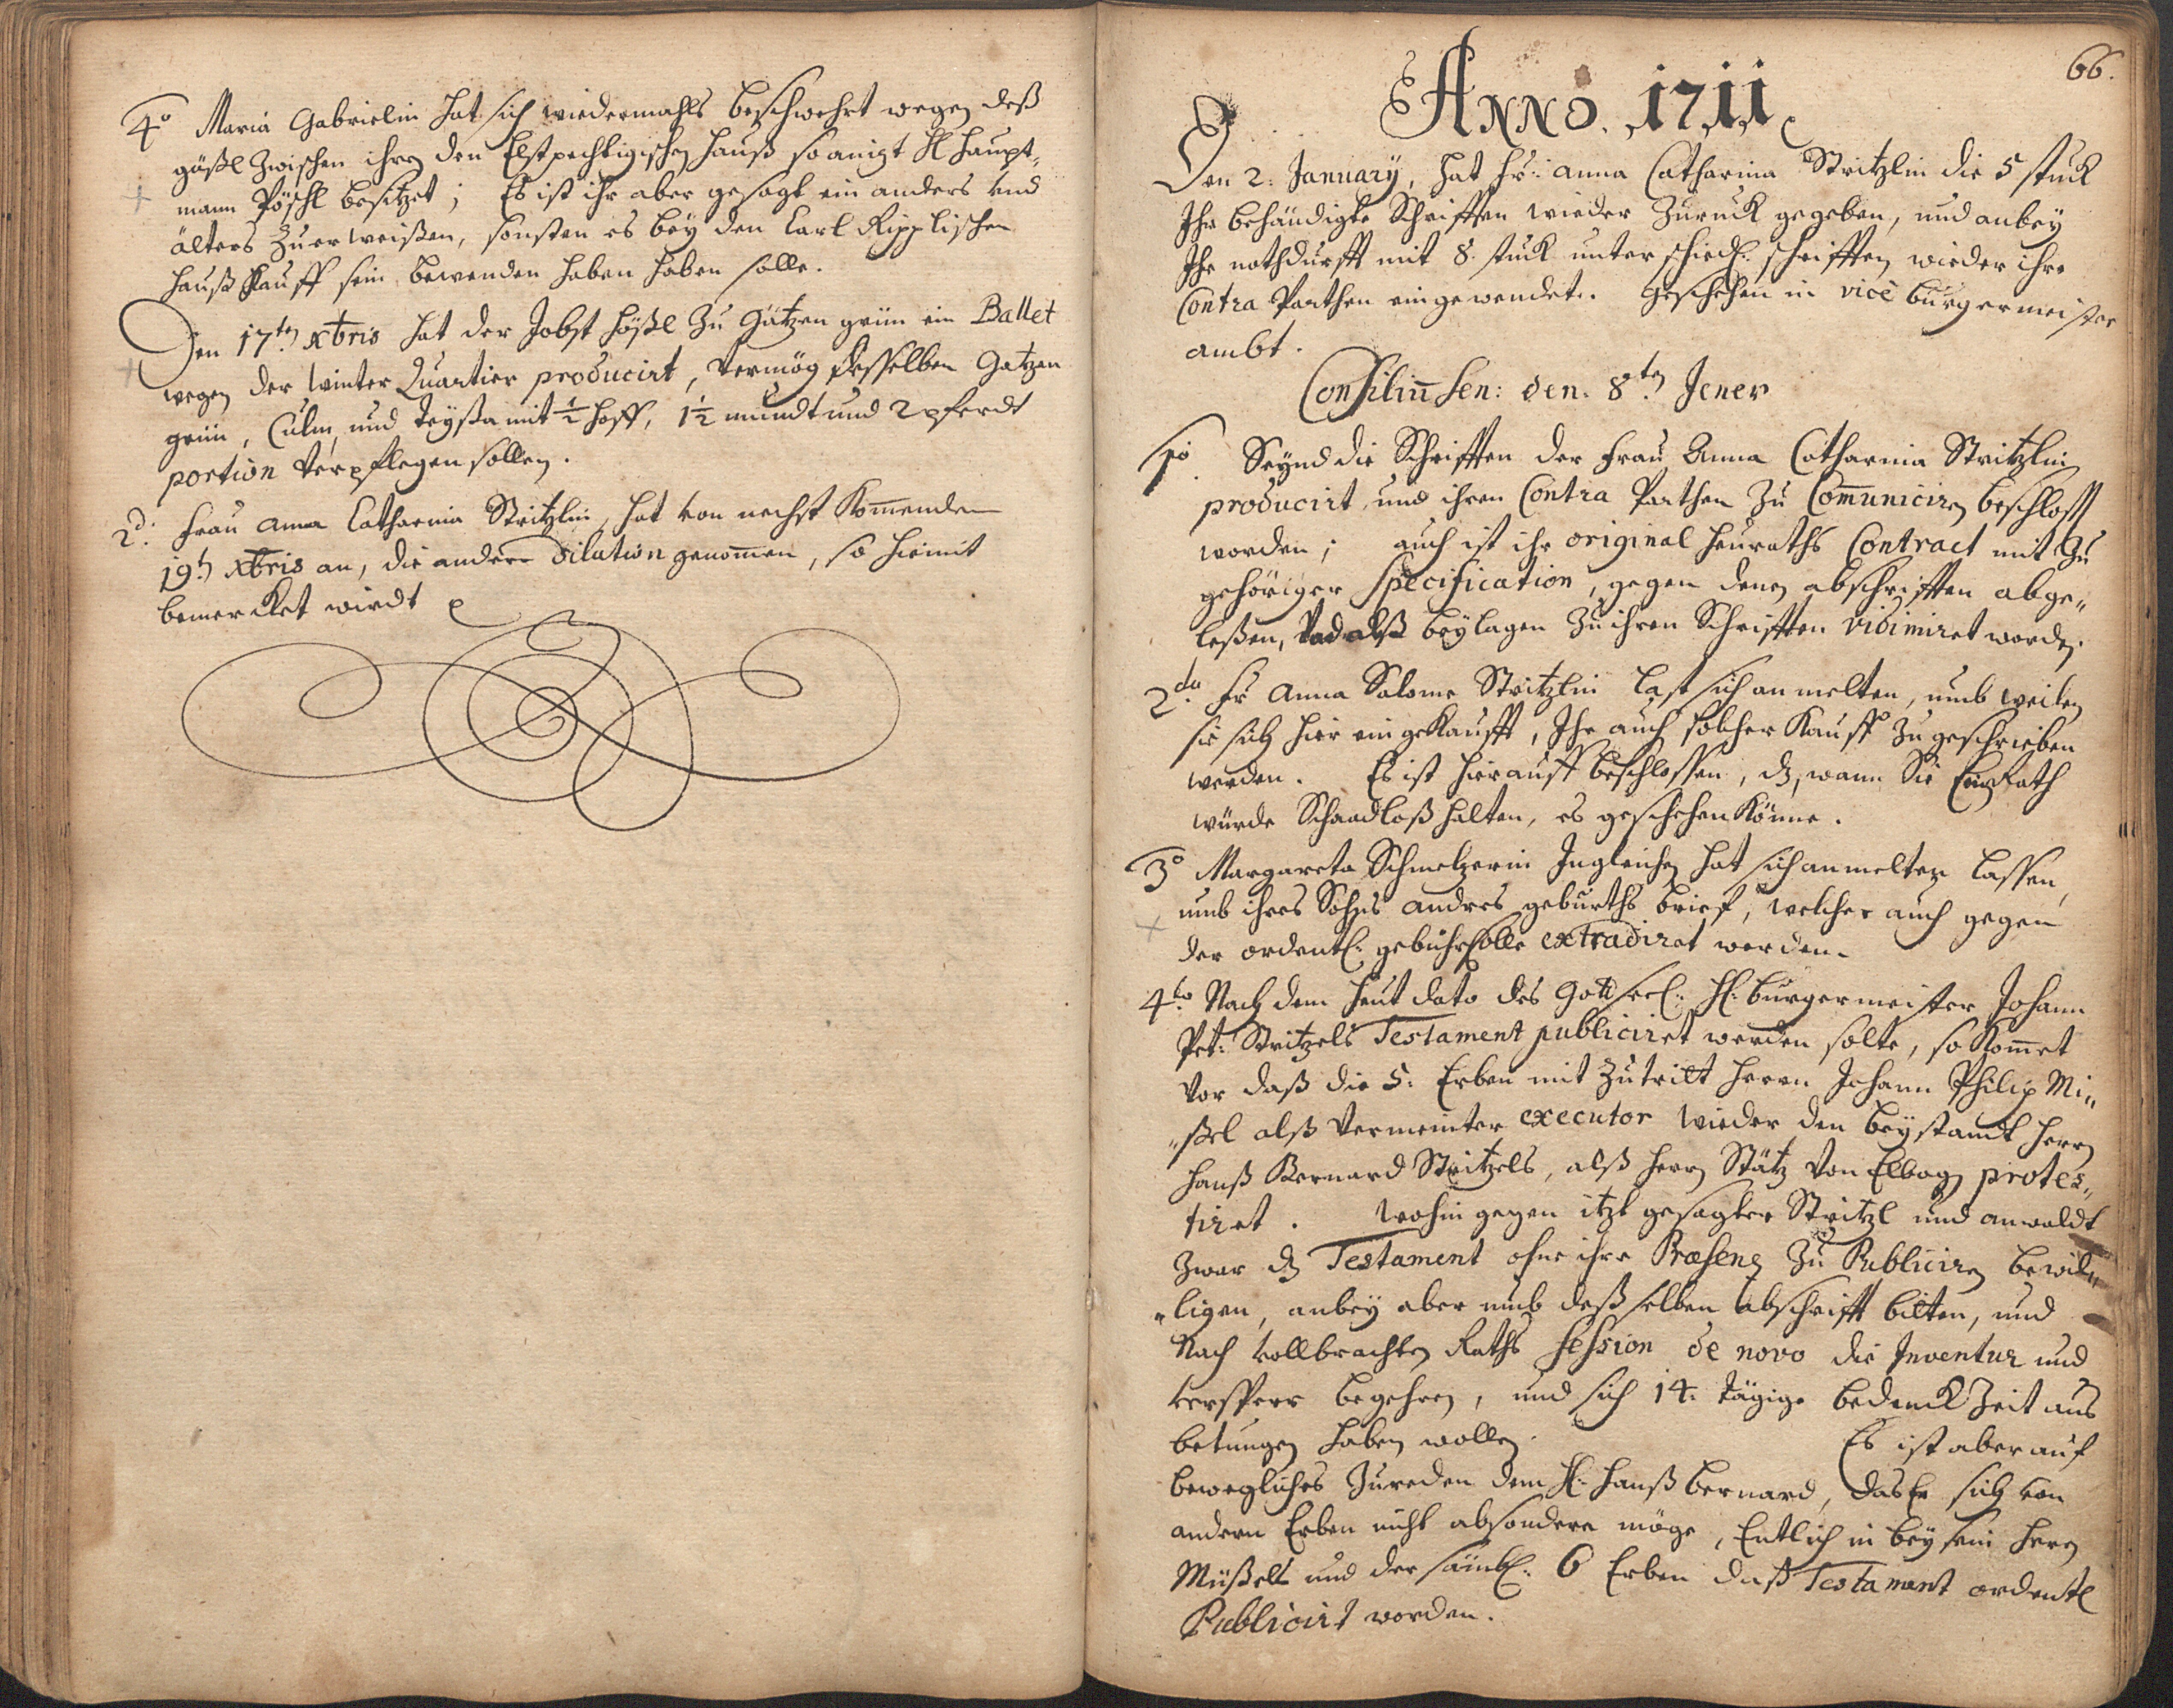 4º Maria Gabrielin hat sich wiedermahls beschwehrt wegen deß
gäßl zwischen ihren den Elstpechtigischen Hauß so anizt H Haupt-
mann Pöschl besitzet; Es ist ihr aber gesagt ein anders und
älters zu erweißen, sonsten es bey den Carl Ripplischen
Hauß Kauff sein bewenden haben haben solle.
Den 17ten Xbris hat der Jobst Hößl zu Gätzen grün ein Ballet
wegen der Winter Quartier producirt, Vermög desselben Gatzen
grün, Culm, und Teyßa mit ½ Hoff, 1½ mundt und 2 pferdt
portion Verpflegen sollen.
2d: Frau Anna Catharina Stritzlin, hat von nechst Kom̅enden
19t Xbris an, die andere Dilation genom̅en, so hiemit
bemercket wirdt
66.
ANNO. 1711
Den 2: January, hat Fr: Anna Catharina Stritzlin die 5 stuck
Ihr behändigte Schrifften wieder Zuruck gegeben, und anbey
Ihr nothdurfft mit 8. stuck unterschiedl: schrifften wieder ihre
Contra Parthen eingewendet. Geschehen in vice Burgermeister
ambt.
Consiliu̅ Sen: den. 8ten Jener
1º Seynd die Schrifften der Frau Anna Catharina Stritzlin
producirt und ihren Contra Parthen zu Com̅uniciren beschlossen
worden; auch ist ihr original Heuraths Contract mit Zu
gehöriger Specification, gegen denen abschrifften abge„
leßen, Und alß beylagen zu ihren Schrifften vidimiret worden.
2do Fr Anna Salome Stritzlin last sich anmelten, umb weilen
sie sich hier eingekaufft, Ihr auch solcher Kauff zugeschrieben
werden. Es ist hierauff beschlossen, dz, wann Sie Ein Rath
würde Schaadloß halten, es geschehen Könne.
3º Margareta Schmelzerin Ingleichen hat sich anmelten lassen,
umb ihres Sohns andres geburths brief, welcher auch gegen
der ordentl: gebühr solle extradiret werden.
4to Nach dem heut dato des Gott seel: H: Burgermeister Johann
Pet: Stritzels Testament publiciret werden solte, so Kom̅et
Vor daß die 5: Erben mit Zutritt Herrn Johann Philip Mi„
„ßel alß Vermeinter executor wieder den beystandt Herrn
Hanß Bernard Stritzels, alß Herrn Stätz Von Elbogen protes„
tiret. Wohingegen itzt gesagter Stritzl und anwaldt
Zwar dz Testament ohne ihre Præsenz zu Publiciren bewil„
„ligen, anbey aber umb deßselben abschrifft bitten, und
Nach vollbrachten Raths Session de novo die Inventur und
versperr begehren, und sich 14. tägige bedenck Zeit aus
betungen haben wollen. Es ist aber auf
bewegliches Zureden dem H: Hanß Bernard, das Er sich von
andern Erben nicht absondern möge, Entlich in beysein Herrn
Müßels und der sämbtl: 6 Erben daß Testament ordentl
Publicirt worden.